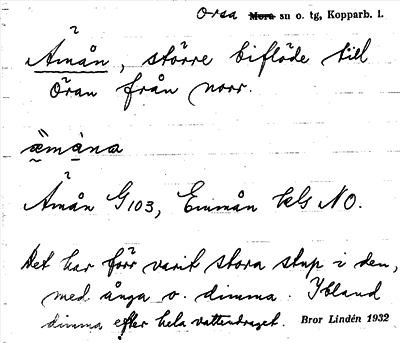 Orsa Mora sn o. tg, Kopparb. l.
Ämån, större biflöde till
Öran från norr.
ämàna
Åmån G 103, Emmån kls NO.
Det har förr varit stora stup i den,
med ånga o. dimma. Ibland
dimma efter hela vattendraget. Bror Lindén 1932